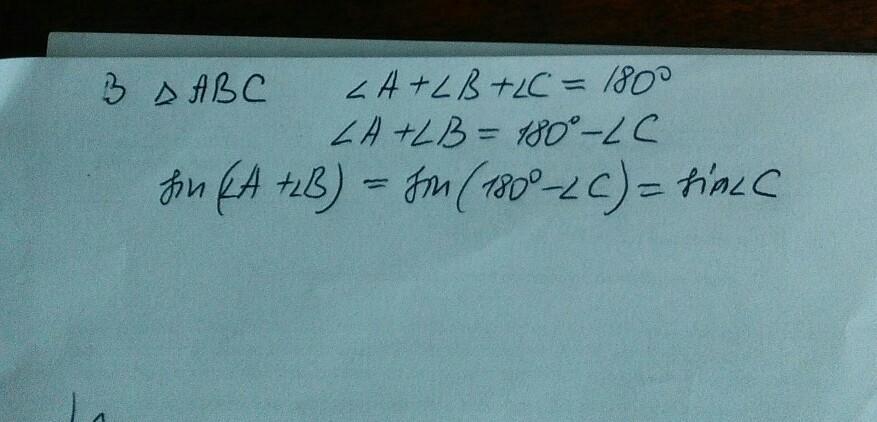 В △ ABC ∠A + ∠B + ∠C = 180°
∠A + ∠B = 180° - ∠C
sin(∠A + ∠B) = sin(180° - ∠C) = sin∠C